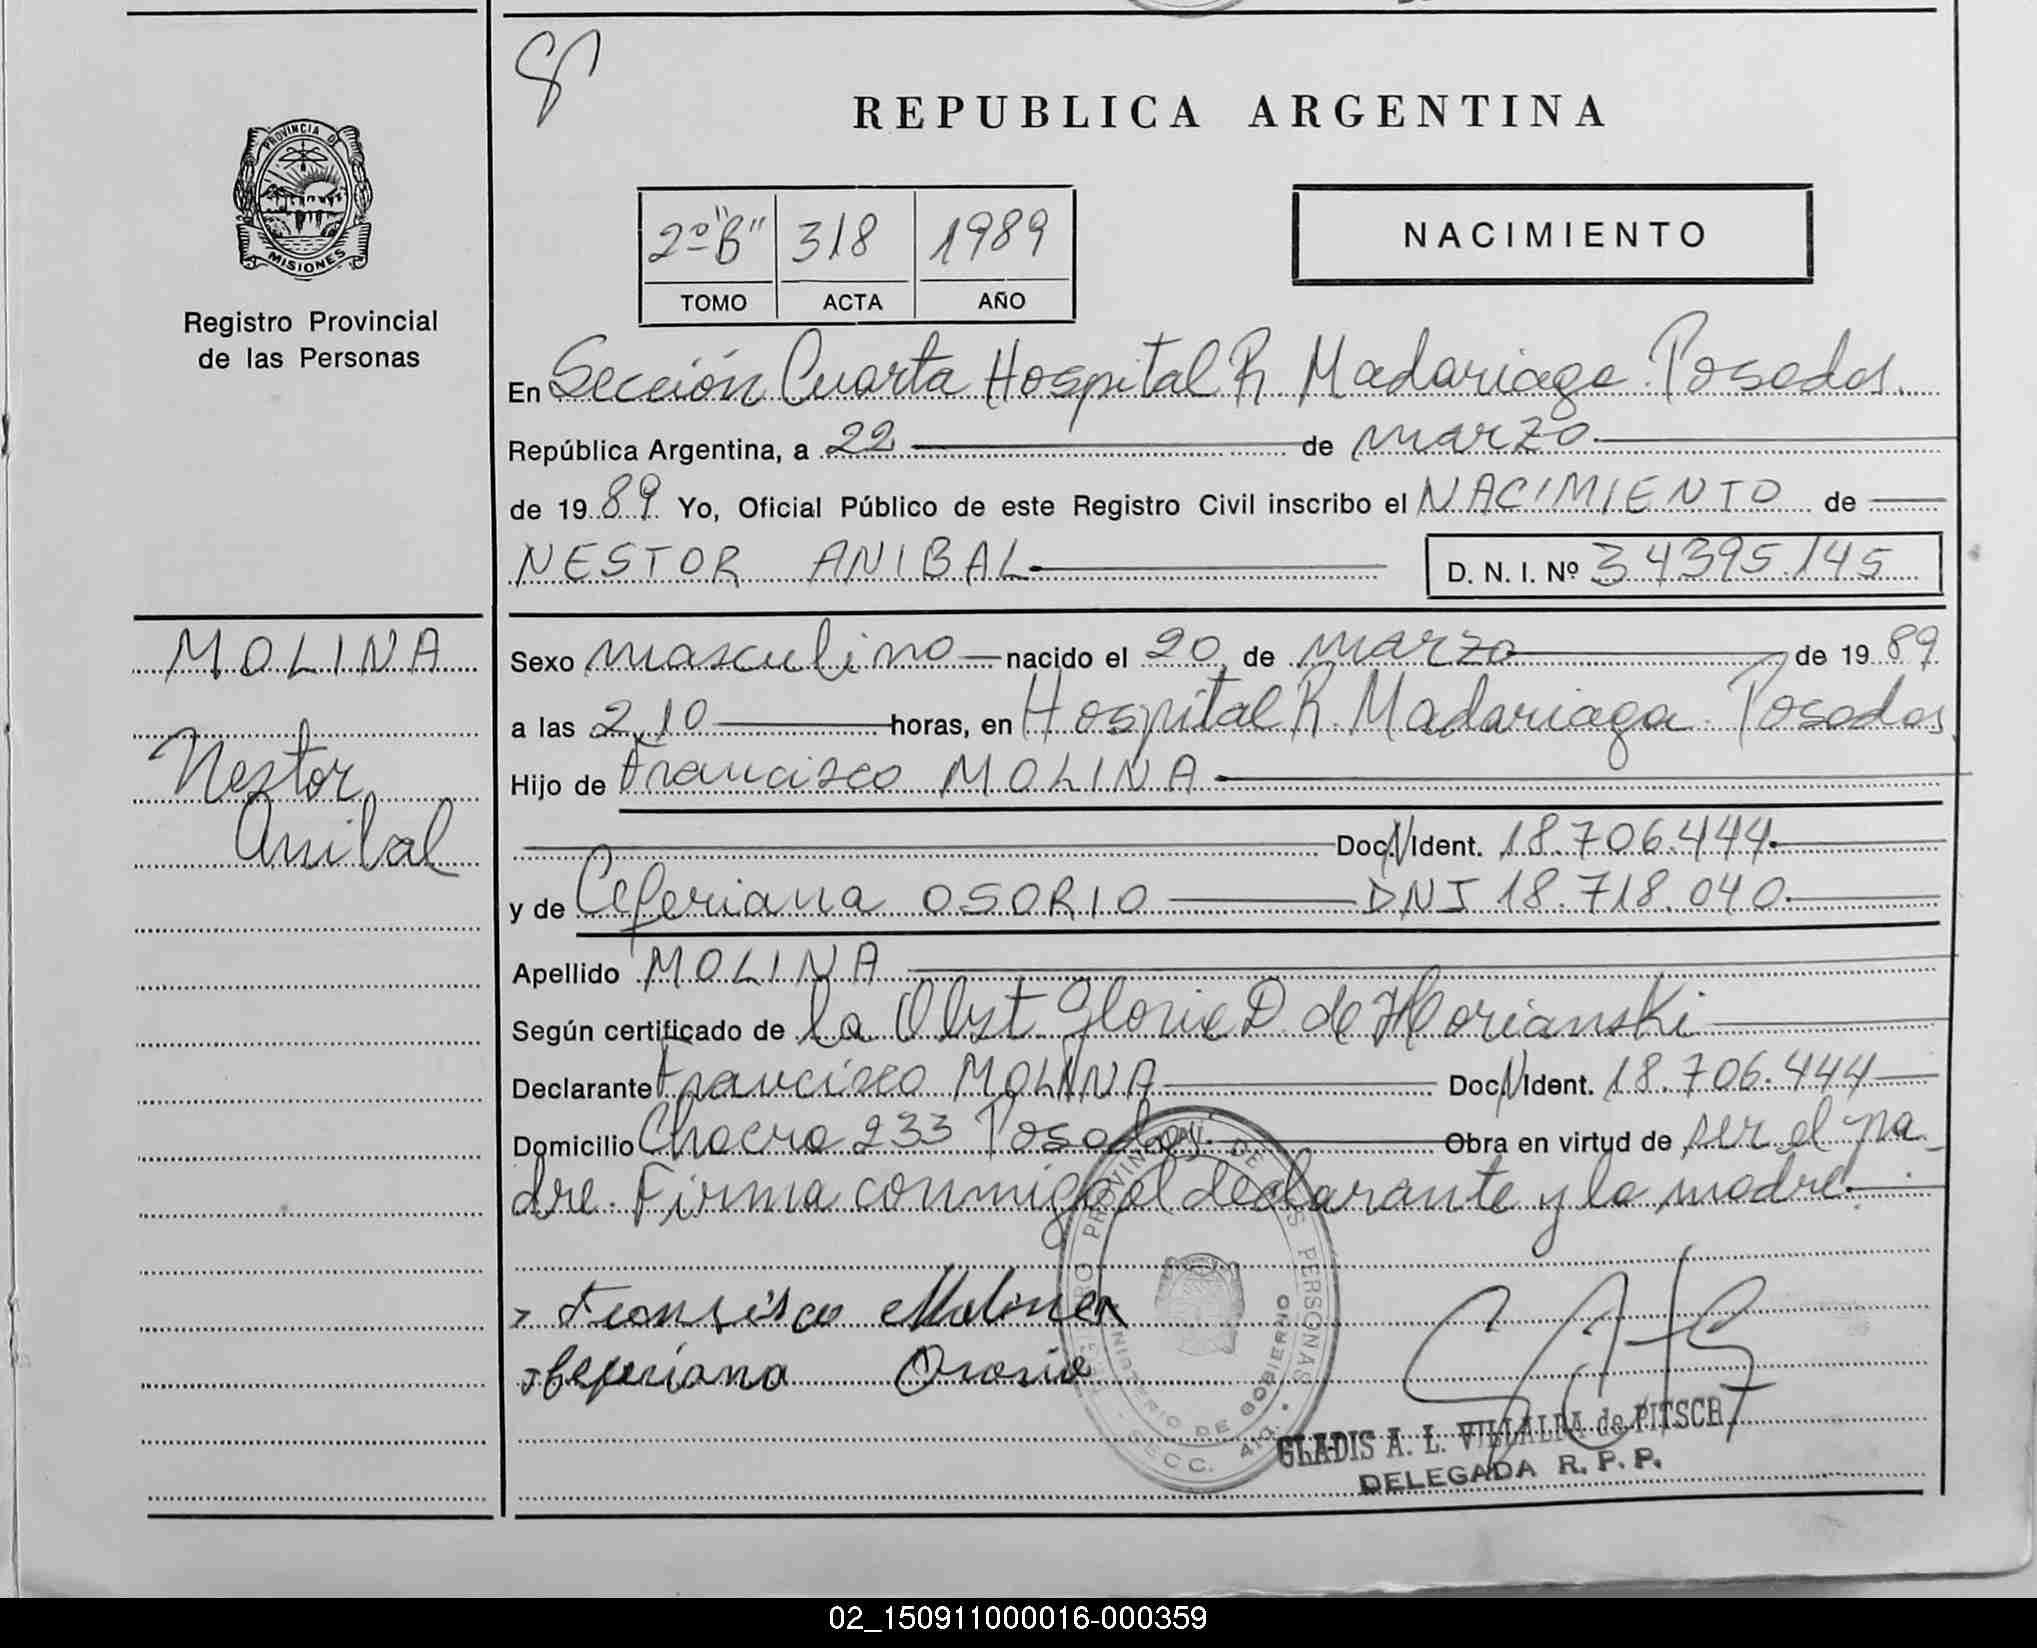 REPUBLICA ARGENTINA
PROVINCIA D
MISIONES
Registro Provincial
de las Personas
2º "B" 318 1989
TOMO ACTA AÑO
NACIMIENTO
En Sección Cuarta Hospital R. Madariaga. Posadas.
República Argentina, a 22 de marzo
de 1989 Yo, Oficial Público de este Registro Civil inscribo el NACIMIENTO de
NESTOR ANIBAL D. N. I. Nº 34395.145
MOLINA
Nestor
Anibal
Sexo masculino nacido el 20 de marzo de 1989
a las 2,10 horas, en Hospital R. Madariaga. Posadas
Hijo de Francisco MOLINA
Doc. Ident. 18.706.444.
y de Ceferiana OSORIO DNI 18.718.040.
Apellido MOLINA
Según certificado de la Obst. Gloria D. de Horianski
Declarante Francisco MOLINA Doc. Ident. 18.706.444
Domicilio Chacra 233 Posadas. Obra en virtud de ser el pa-
dre. Firma conmigo el declarante y la madre.
Fransisco Molina
Ceferiana Osorio
REGISTRO PROVINCIAL DE LAS PERSONAS
MINISTERIO DE GOBIERNO
SECC. 4ta.
GLADIS A. L. VILLALBA de PITSCH
DELEGADA R. P. P.
02_150911000016-000359